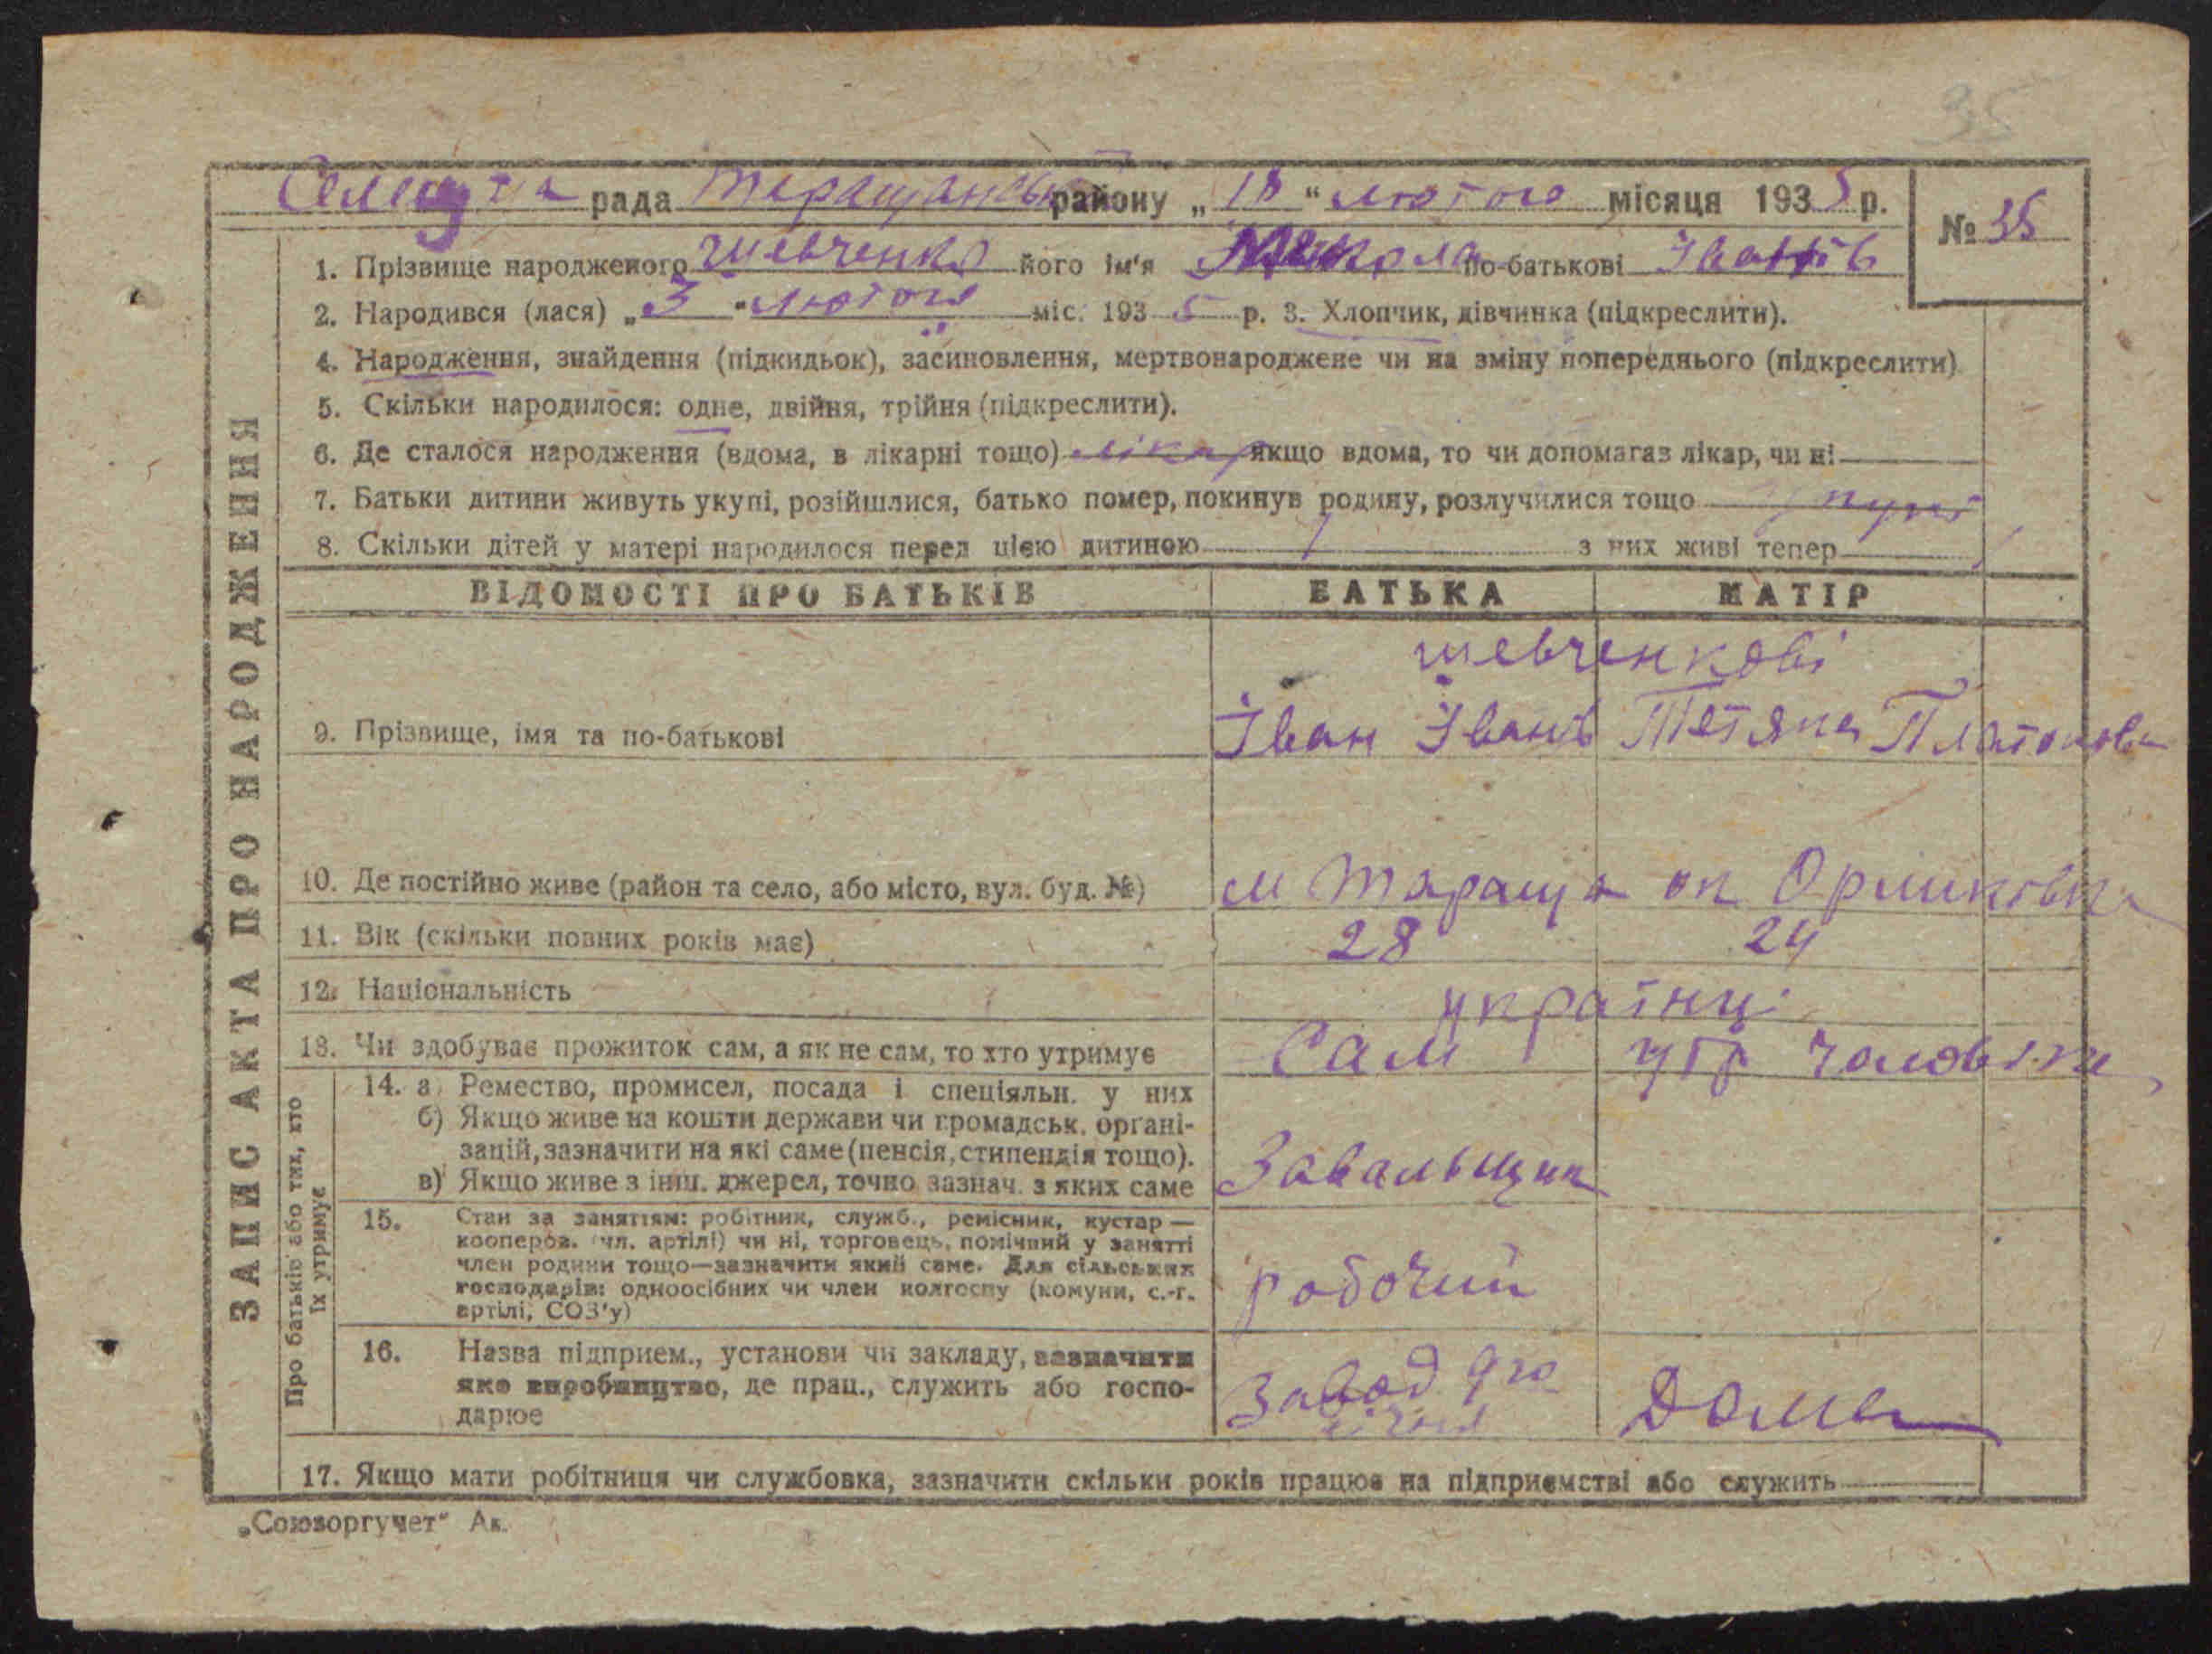 35
Селищна рада Таращанськ району „18“ лютого місяця 1935 р.
№ 35
1. Прізвище народженого Шевченко його ім'я Микола по-батькові Іванів
2. Народився (лася) „3“ лютого міс. 1935 р. 3. Хлопчик, дівчинка (підкреслити).
4. Народження, знайдення (підкидьок), засиновлення, мертвонароджене чи на зміну попереднього (підкреслити)
5. Скільки народилося: одне, двійня, трійня (підкреслити).
6. Де сталося народження (вдома, в лікарні тощо) лікар якщо вдома, то чи допомагаз лікар, чи ні
7. Батьки дитини живуть укупі, розійшлися, батько помер, покинув родину, розлучилися тощо укупі
8. Скільки дітей у матері народилося перед цією дитиною 1 з них живі тепер
ВІДОМОСТІ ПРО БАТЬКІВ БАТЬКА МАТІР
Шевченкові
9. Прізвище, імя та по-батькові Іван Іванів Тетяна Платонова
10. Де постійно живе (район та село, або місто, вул. буд. №) м Тараща
11. Вік (скільки повних років має) 28 24
12. Національність українці
13. Чи здобуває прожиток сам, а як не сам, то хто утримує Сам утр чоловіка
Про батьків або тих, хто їх утримує
14. а) Ремество, промисел, посада і спеціяльн. у них
б) Якщо живе на кошти держави чи громадськ. органі-
зацій, зазначити на які саме (пенсія, стипендія тощо).
в) Якщо живе з інш. джерел, точно зазнач. з яких саме
Завальщик
15. Стан за заняттям: робітник, служб., ремісник, кустар —
коопеpов. (чл. артілі) чи ні, торговець, помічний у занятті
член родини тощо—зазначити який саме. Для сільських
господарів: одноосібних чи член колгоспу (комуни, с.-г.
артілі, СОЗ'у)
робочий
16. Назва підприєм., установи чи закладу, зазначити
яке виробництво, де прац., служить або госпо-
дарює
Завод 9го
січня
Дома
17. Якщо мати робітниця чи службовка, зазначити скільки років працює на підприємстві або служить
ЗАПИС АКТА ПРО НАРОДЖЕННЯ
„Союзоргучет“ Ак.